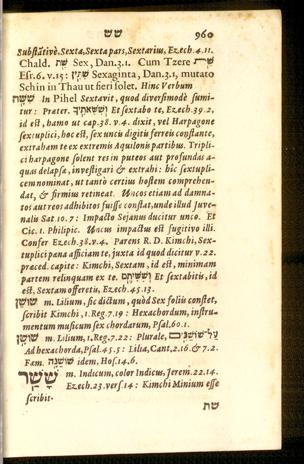 שש 960
Substãtivè, Sexta, Sexta pars, Sextarius, Ezech. 4.11.
Chald. שֵׁת Sex, Dan. 3.1. Cum Tzere
Esr. 6. v. 15: שִׁתִּין Sexaginta, Dan. 3.1, mutato
Schin in Thau ut fieri solet. Hinc Verbum
In Pihel Sextavit, quod diversimodè sumi-
tur: Præter. וְשִׁשֵּׁאתִיךָ Et sextabo te, Ezech. 39.2.
id est, hamo ut cap. 38. v. 4. dixit, vel Harpagone
sextuplici, hoc est, sex uncis digitis ferreis constante,
extraham te ex extremis Aquilonis partibus. Tripli-
ci harpagone solent res in puteos aut profundas a-
quas delapsæ, investigari & extrahi: hîc sextupli-
cem nominat, ut tantò certius hostem comprehen-
dat, & firmius retineat. Uncos etiam ad damna-
tos aut reos adhibitos fuisse constat, unde illud Juve-
nalis Sat. 10. 7: Impacto Sejanus ducitur unco. Et
Cic. 1. Philipic. Uncus impactus est fugitivo illi.
Confer Ezech. 38. v. 4. Parens R. D. Kimchi, Sex-
tuplici pana afficiam te, juxta id quod dicitur v. 22.
præced. capite: Kimchi, Sextam, id est, minimam
partem relinquam ex te. וְשִׁשִּׁיתֶם Et sextabitis, id
est, Sextam offeretis, Ezech. 45. 13.
שׁוּשַׁן m. Lilium, sic dictum, quòd Sex foliis constet,
scribit Kimchi, 1. Reg. 7. 19: Hexachordum, instru-
mentum musicum sex chordarum, Psal. 60. 1.
שׁוֹשָׁן m. Lilium, 1. Reg. 7. 22: Plurale, עַל־שׁוֹשַׁנִּים
Ad hexachorda, Psal. 45. 5: Lilia, Cant. 2. 16. & 7. 2.
Fœm. שׁוֹשַׁנָּה idem, Hos. 14. 6.
שָׁשַׁר m. Indicum, color Indicus, Jerem. 22. 14.
Ezech. 23. vers. 14: Kimchi Minium esse
scribit.
שת